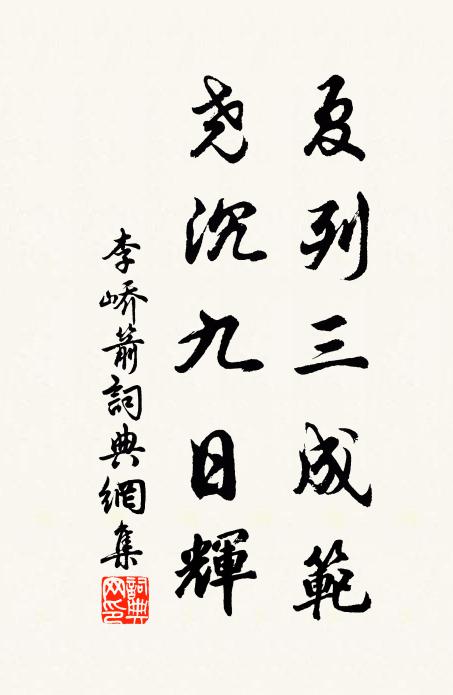 夏列三成範
尧沉九日輝
李嶠箭詞典網集
詞典网印